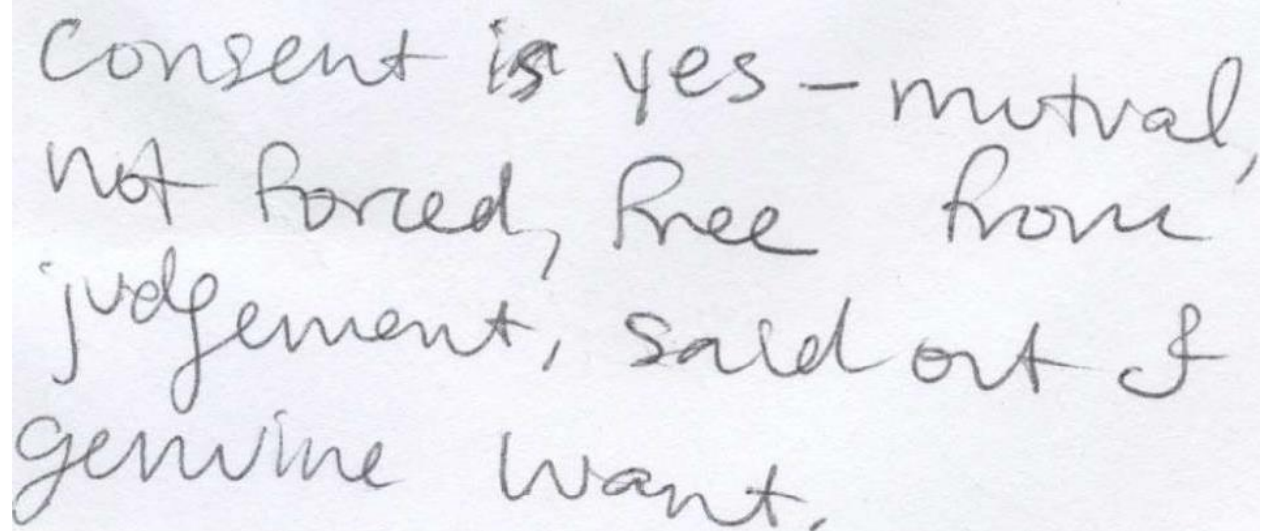 Consent is yes – mutual,
not forced, free from
judgement, said out of
genuine want.